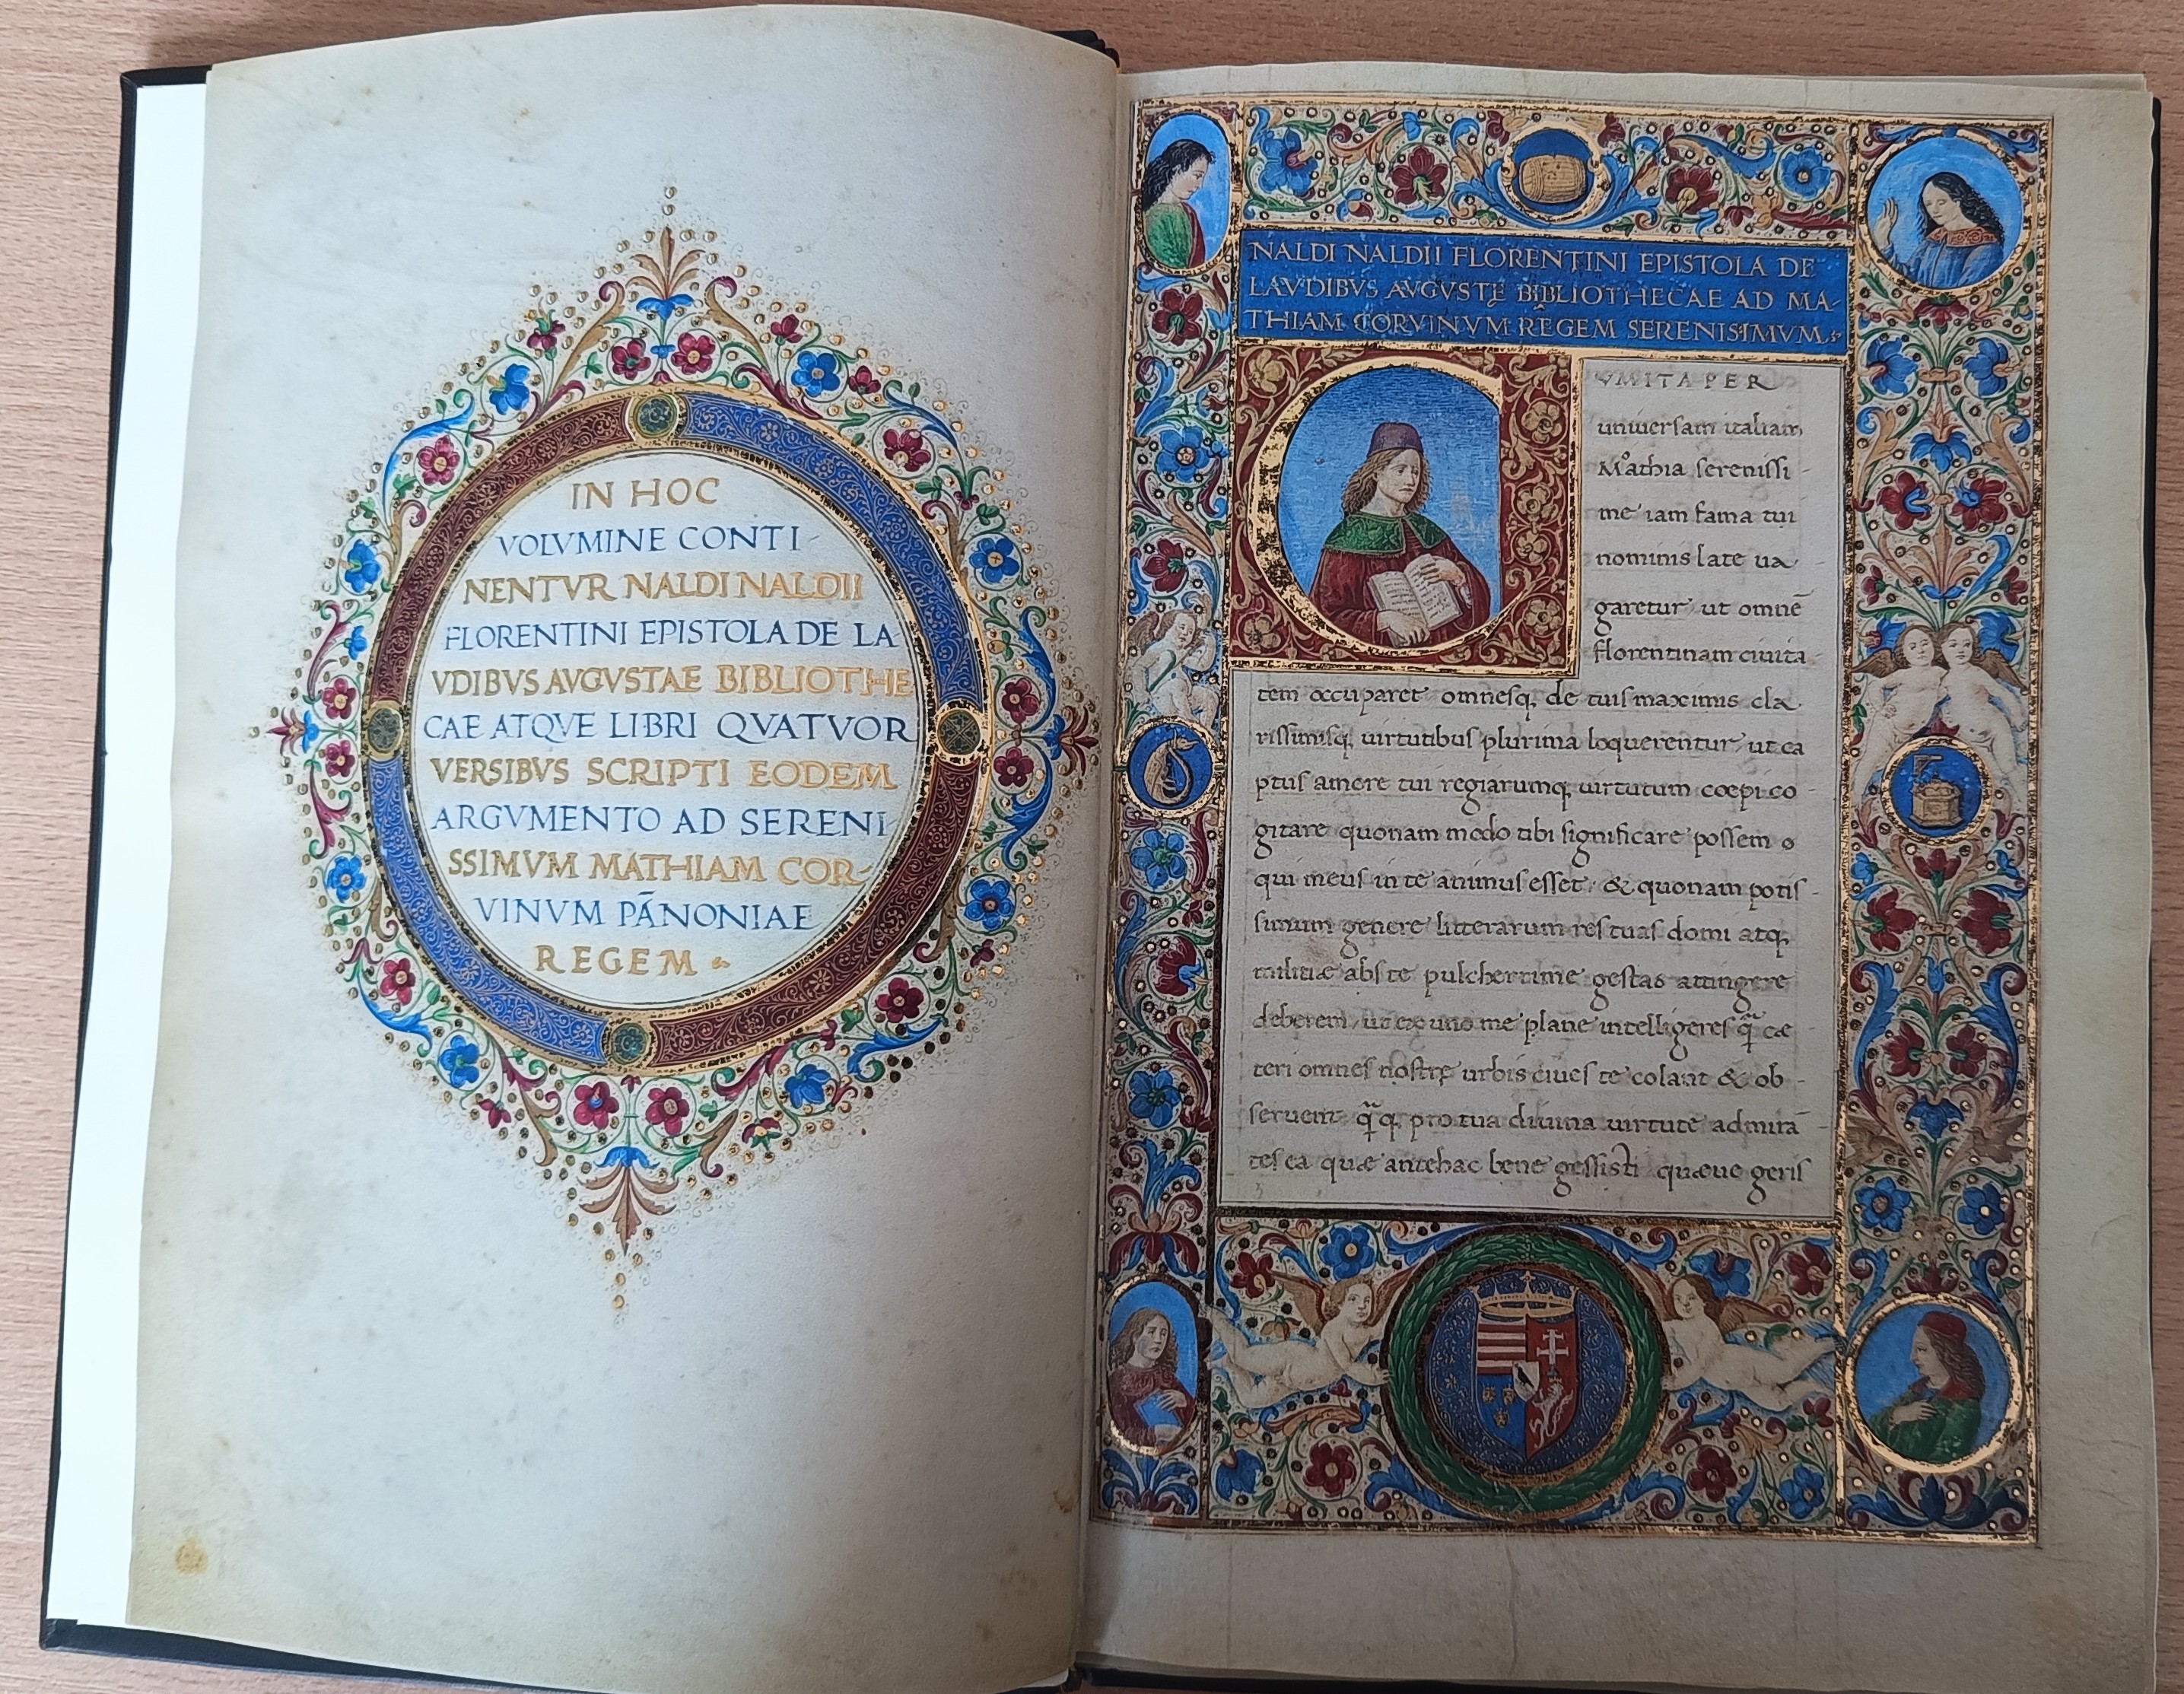 IN HOC
VOLVMINE CONTI-
NENTVR NALDI NALDII
FLORENTINI EPISTOLA DE LA-
VDIBVS AVGVSTAE BIBLIOTHE
CAE ATQVE LIBRI QVATVOR
VERSIBVS SCRIPTI EODEM
ARGVMENTO AD SERENI
SSIMVM MATHIAM COR-
VINVM PĀNONIAE
REGEM
NALDI NALDII FLORENTINI EPISTOLA DE
LAVDIBVS AVGVSTĘ BIBLIOTHECAE AD MA-
THIAM CORVINVM REGEM SERENISIMVM
VM ITA PER
uniuersam italiam
Mathia serenissi-
me iam fama tui
nominis late ua-
garetur ut omnē
florentinam ciuita
tem occuparet omnesq; de tuis maximis cla-
rissimisq; uirtutibus plurima loquerentur, ut ca
ptus amore tui regiarumq; uirtutum coepi co-
gitare quonam modo tibi significare possem
qui meus in te animus esset, & quonam potis-
simum genere litterarum res tuas domi atq;
militiæ abs te pulcherrime gestas attingere
deberem, ut ex uno me plane intelligeres q̄ cæ-
teri omnes nostrę urbis ciues te colant & ob-
seruent, q̄q; pro tua diuina uirtute admirā-
tes ea quæ antehac bene gessisti quæue geris